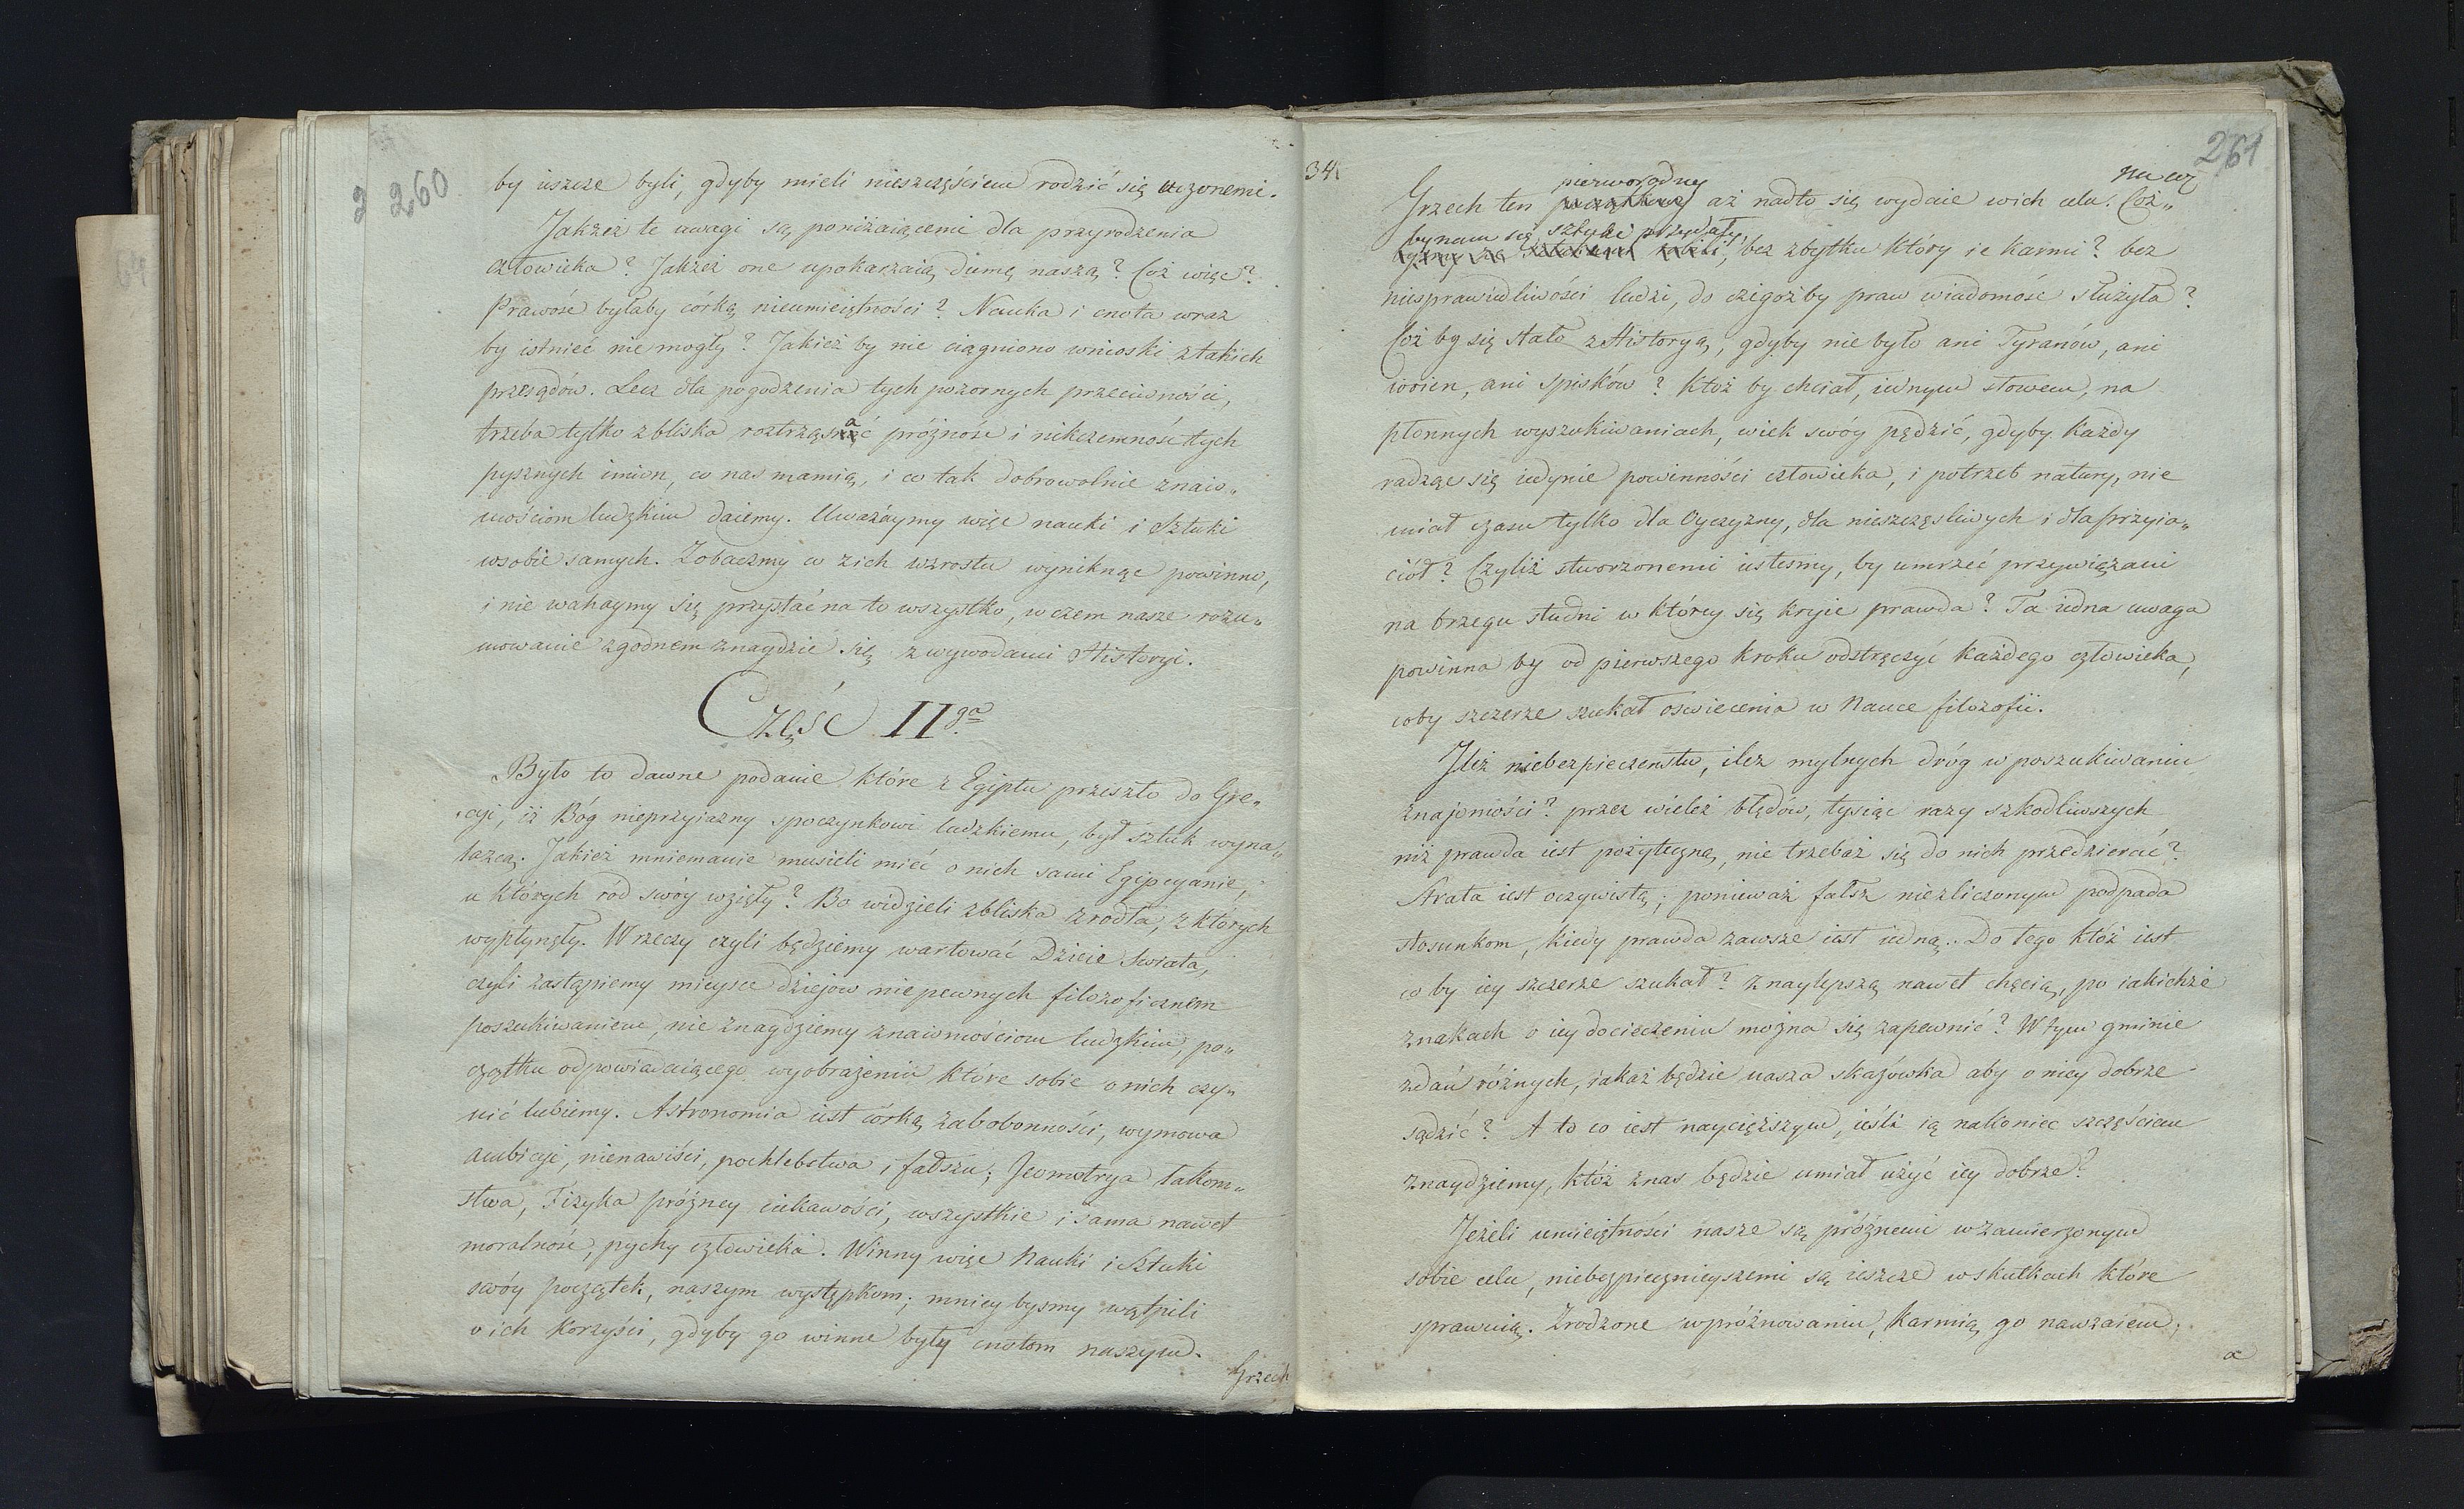 2 260
by ieszcze byli, gdyby mieli nieszczęściem rodzić się uczonemi.
Jakżeż te uwagi są poniżaiącemi dla przyrodzenia
człowieka? Jakżeż one upokarzaią dumę naszą? Cóż więc?
Prawość byłaby córką nieumieiętności? Nauka i cnota wraz
by istnieć nie mogły? Jakież by nie ciągniono wnioski z takich
przesądów. Lecz dla pogodzenia tych pozornych przeciwności,
trzeba tylko zbliska roztrząsać próżność i nikczemność tych
pysznych imion, co nas mamią, i co tak dobrowolnie znaio„
mościom ludzkim daiemy. Uważaymy więc nauki i Sztuki
wsobie samych. Zobaczmy co zich wzrostu wyniknąć powinno,
i nie wahaymy się przystać na to wszystko, wczem nasze rozu„
mowanie zgodnem znaydzie się z wywodami Historyi.
Część II ga
Było to dawne podanie które z Egiptu przeszło do Gre„
cyi, iż Bóg nieprzyiazny spoczynkowi ludzkiemu, był sztuk wyna„
lazcą. Jakież mniemanie musieli mieć o nich sami Egipcyanie,
u których ród swóy wzięły? Bo widzieli zbliska zrodła, z których
wypłynęły. W rzeczy czyli będziemy wartować Dzieie Swiata,
czyli zastąpiemy mieysce dziejów niepewnych filozoficznem
poszukiwaniem, nie znaydziemy znaiomościom ludzkim, po„
czątku odpowiadaiącego wyobrażeniu które sobie onich czy„
nić lubiemy. Astronomia iest córką zabobonności, wymowa
ambicyi, nienawiści, pochlebstwa i fałszu; Jeometrya łakom„
stwa, Fizyka próżney ciekawości, wszystkie i sama nawet
moralność, pychy człowieka. Winny więc Nauki i Sztuki
swóy początek, naszym występkom; mniey bysmy wątpili
o ich korzyści, gdyby go winne były cnotom naszym.
Grzech
34
261
pierworodny
na cóż
Grzech ten początkowy aż nadto się wydaie wich celu. Cóż„
by nam się sztuki przydały,
bez zbytku który ie karmi? bez
niesprawiedliwości ludzi, do czegożby praw wiadomość służyła?
Cóż by się stało z Historyą, gdyby nie było ani Tyranów, ani
woien, ani spisków? Któż by chciał, iednym słowem, na
płonnych wyszukiwaniach, wiek swóy pędzić, gdyby każdy
radząc się iedynie powinności człowieka, i potrzeb natury, nie
miał czasu tylko dla Oyczyzny, dla nieszczęsliwych i dla przyia„
ciół? Czyliż stworzonemi iestesmy, by umrzeć przywiązani
na brzegu studni w którey się kryie prawda? Ta iedna uwaga
powinna by od pierwszego kroku odstręczyć każdego człowieka,
coby szczerze szukał oswiecenia w Nauce filozofii.
Ileż niebezpieczenstw, ileż mylnych dróg w poszukiwaniu
znajomości? przez wieleż błędów, tysiąc razy szkodliwszych
niż prawda iest pożyteczną, nie trzebaż się do nich przedzierać?
Strata iest oczywistą; ponieważ fałsz niezliczonym podpada
stosunkom, kiedy prawda zawsze iest iedną. Do tego któż iest
co by iey szczerze szukał? Z naylepszą nawet chęcią, po iakichże
znakach o iey docieczeniu można się zapewnić? W tym gminie
zdań różnych, iakaż będzie nasza skazówka aby o niey dobrze
sądzić? A to co iest naycięższym, ieśli ią nakoniec szczęściem
znaydziemy, któż z nas będzie umiał użyć iey dobrze?
Jeżeli umieiętności nasze są próżnemi wzamierzonym
sobie celu, niebezpiecznieyszemi są ieszcze wskutkach które
sprawuią. Zrodzone wpróżnowaniu, karmią go nawzaiem;
a